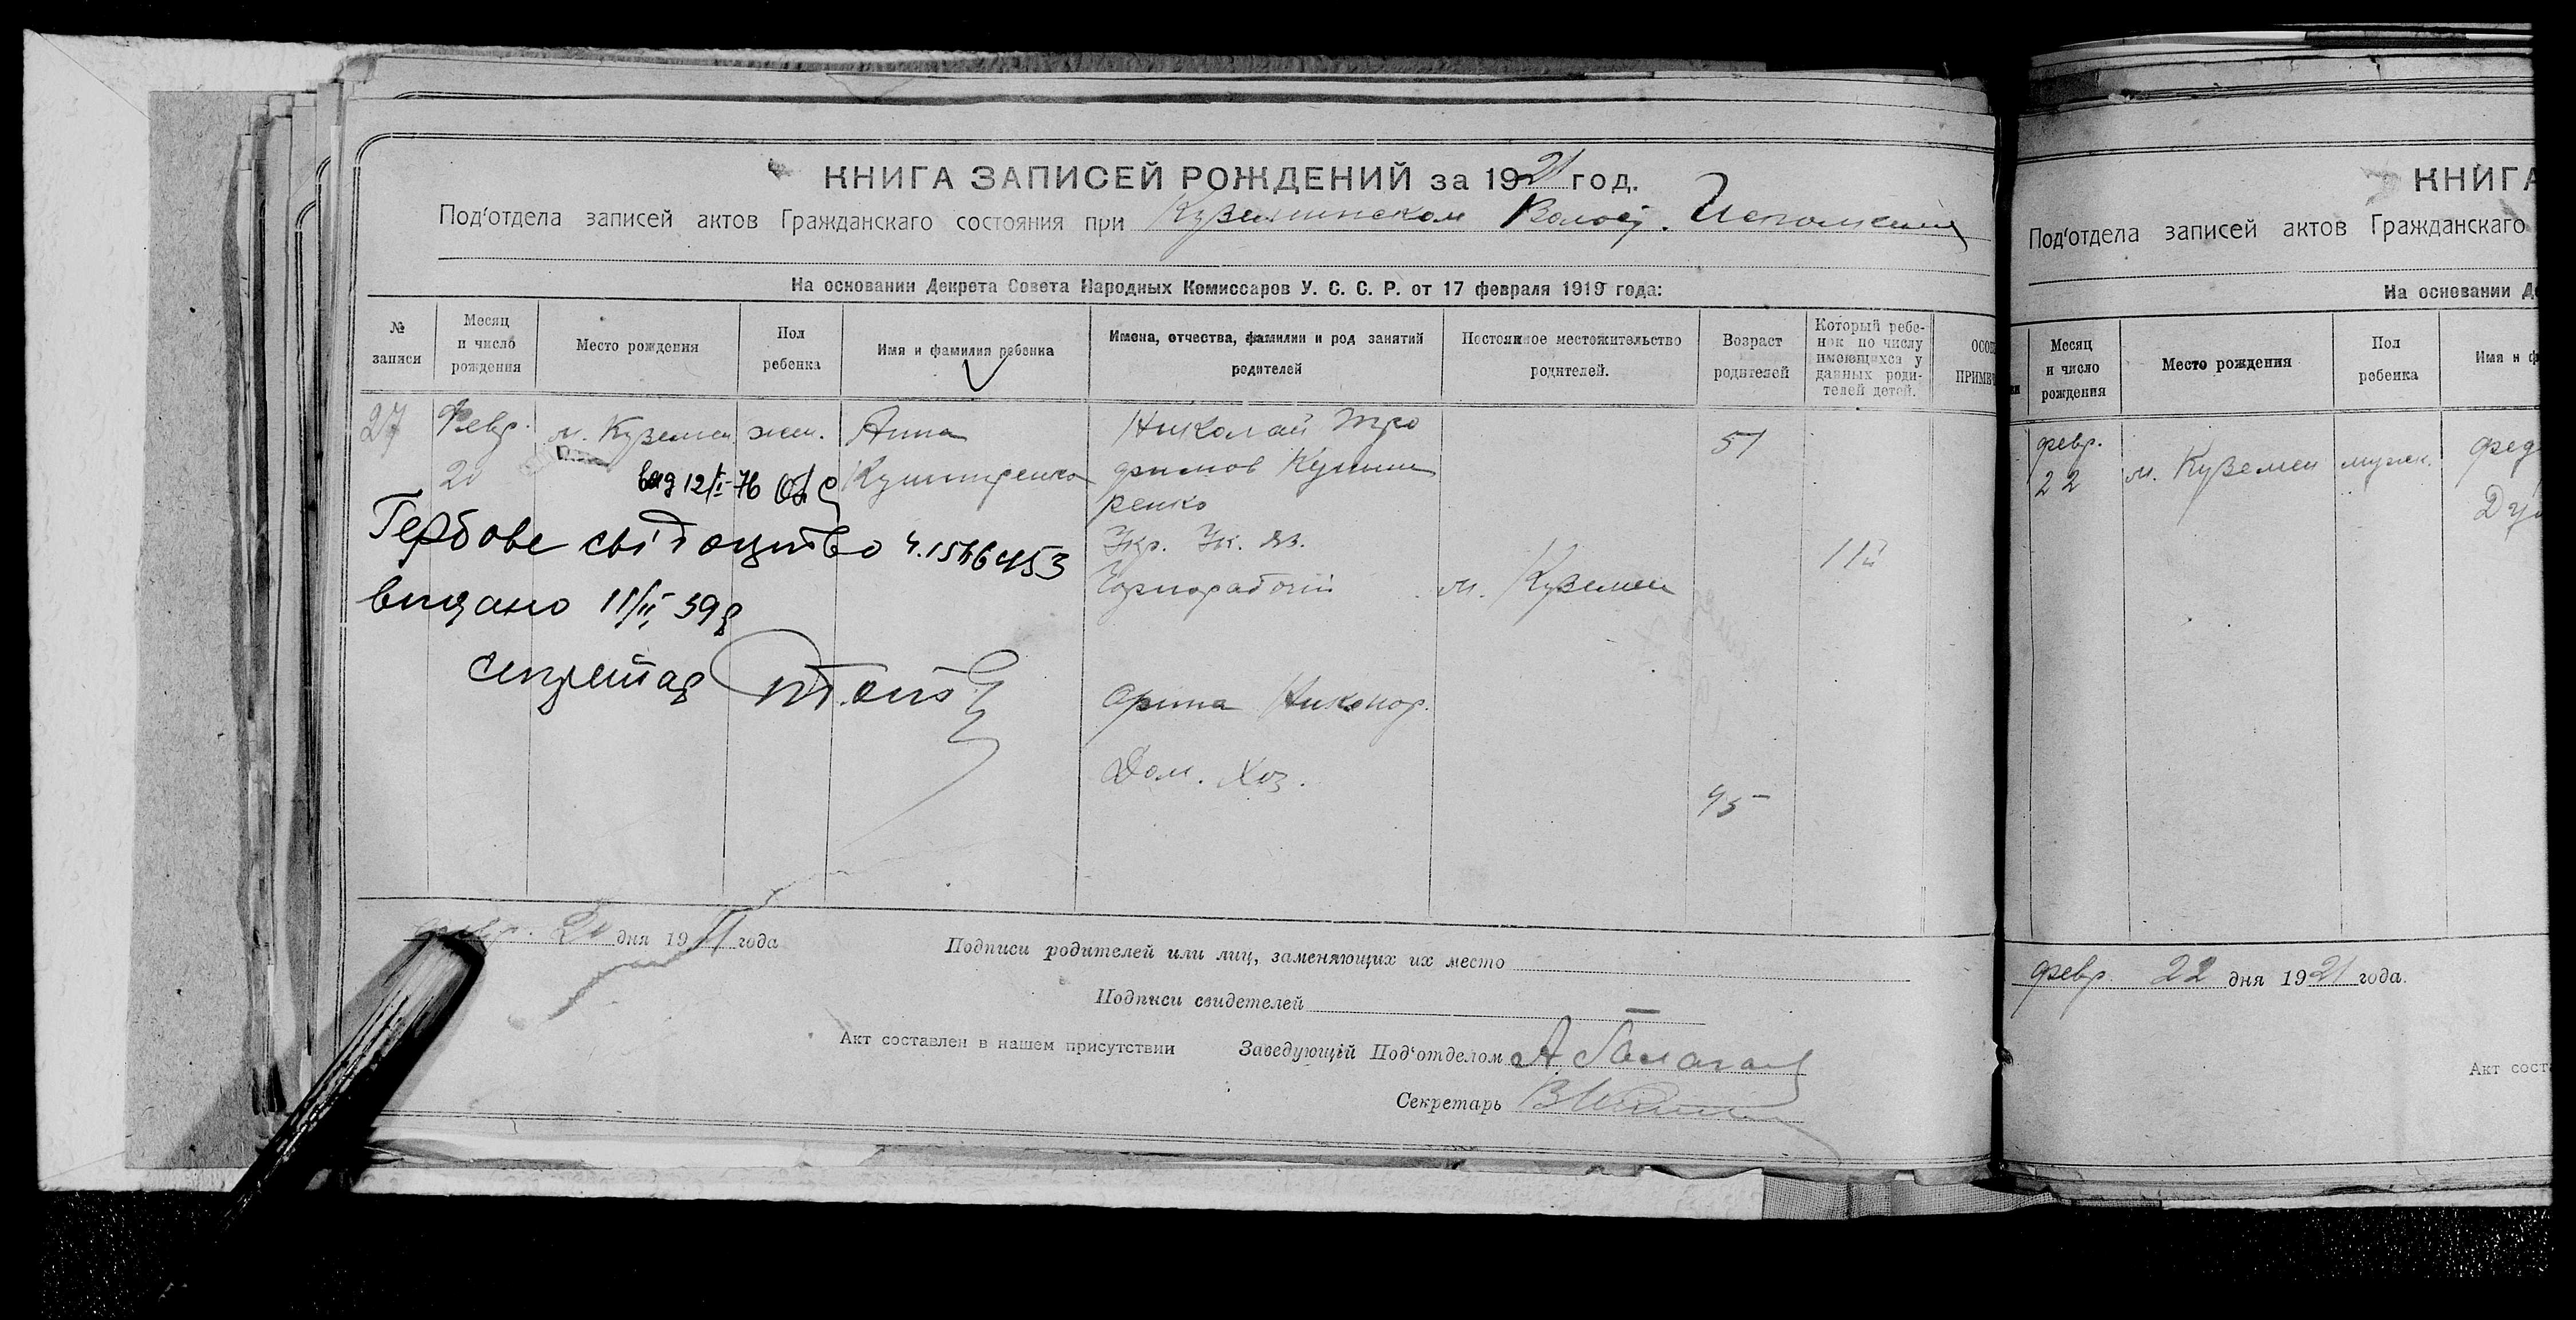 КНИГА ЗАПИСЕЙ РОЖДЕНИЙ за 1921 год.
Под'отдела записей актов Гражданскаго состояния при Куземинском Волос. Исполкоме
На основании Декрета Совета Народных Комиссаров У. С. С. Р. от 17 февраля 1919 года:
№ записи
Месяц и число рождения
Место рождения
Пол ребенка
Имя и фамилия ребенка
Имена, отчества, фамилии и род занятий родителей
Постоянное местожительство родителей.
Возраст родителей
Который ребе-
нок по числу
имеющихся у
данных роди-
телей детей.
27
Февр.
20
м. Куземен
жен.
Анна
Кушниренко
Николай Тро
фимов Кушни
ренко
Укр.
Чернорабочий
м. Куземен
51
11й
Орина Никонор.
Дом. Хоз.
45
вид 12/I-76
Гербове свідоцтво ч.
видано 11/II 39р
секретар
февр. 20 дня 1921 года
Подписи родителей или лиц, заменяющих их место
Подписи свидетелей
Акт составлен в нашем присутствии
Заведующій Под'отделом А.
Секретарь
КНИГА
Под'отдела записей актов Гражданскаго
На основании
Месяц и число рождения
Место рождения
Пол ребенка
Имя и ф
февр.
22
м. Куземен
мужск.
Фед
февр. 22 дня 1921 года.
Акт сост